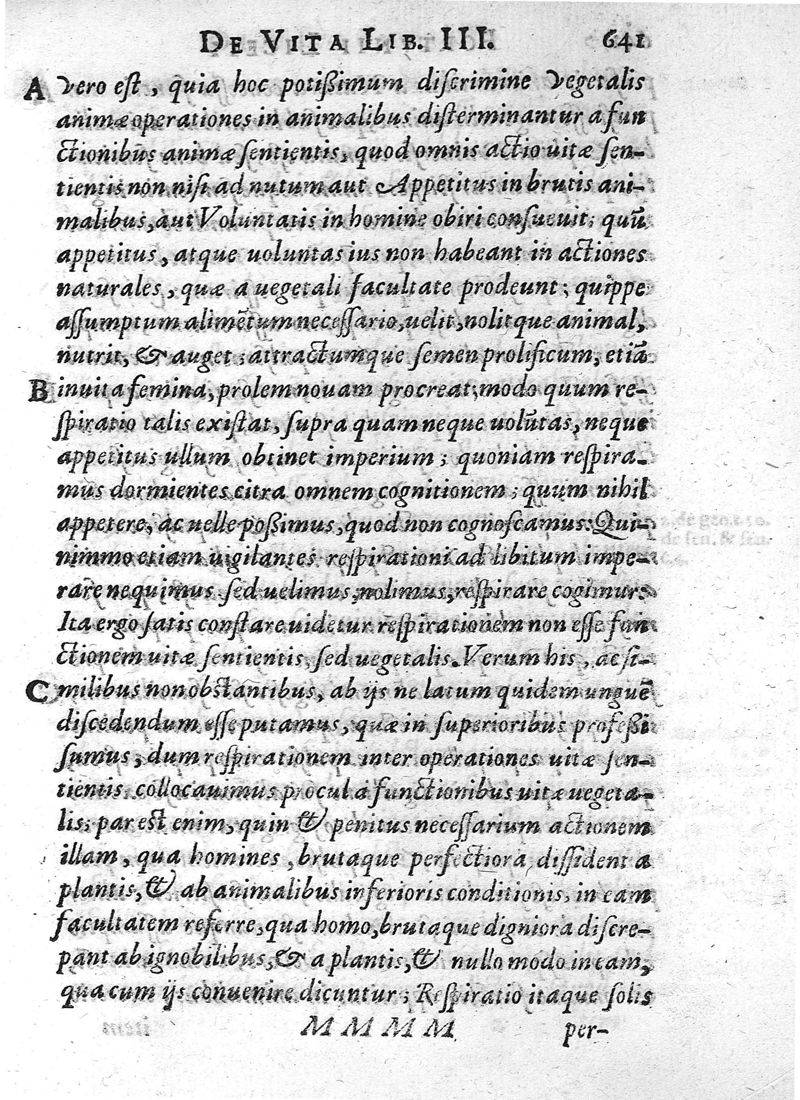 DE VITA LIB. III. 641
A vero est, quia hoc potißimum discrimine vegetalis
animæ operationes in animalibus disterminantur a fun
ctionibus animæ sentientis, quod omnis actio uitæ sen-
tientis non nisi ad nutum aut Appetitus in brutis ani-
malibus, aut Voluntatis in homine obiri consueuit: quũ
appetitus, atque uoluntas ius non habeant in actiones
naturales, quæ a uegetali facultate prodeunt; quippe
assumptum alimẽtum necessario, uelit, nolitque animal,
nutrit, & auget: attractumque semen prolificum, etiã
B inuita femina, prolem nouam procreat; modo quum re-
spiratio talis existat, supra quam neque uolũtas, neque
appetitus ullum obtinet imperium; quoniam respira-
mus dormientes citra omnem cognitionem; quum nihil
appetere, ac uelle poßimus, quod non cognoscamus: Qui-
nimmo etiam uigilantes respirationi ad libitum impe-
rare nequimus sed uelimus, nolimus, respirare cogimur:
Ita ergo satis constare uidetur respirationem non esse fun
ctionem uitæ sentientis, sed uegetalis. Verum his, ac si-
C milibus non obstantibus, ab ijs ne latum quidem unguẽ
discedendum esse putamus, quæ in superioribus profeßi
sumus, dum respirationem inter operationes uitæ sen-
tientis collocauimus procul a functionibus uitæ uegeta-
lis: par est enim, quin & penitus necessarium actionem
illam, qua homines, brutaque perfectiora dissident a
plantis, & ab animalibus inferioris conditionis, in eam
facultatem referre, qua homo, brutaque digniora discre-
pant ab ignobilibus, & a plantis, & nullo modo in eam,
qua cum ijs conuenire dicuntur; Respiratio itaque solis
MMMM per-